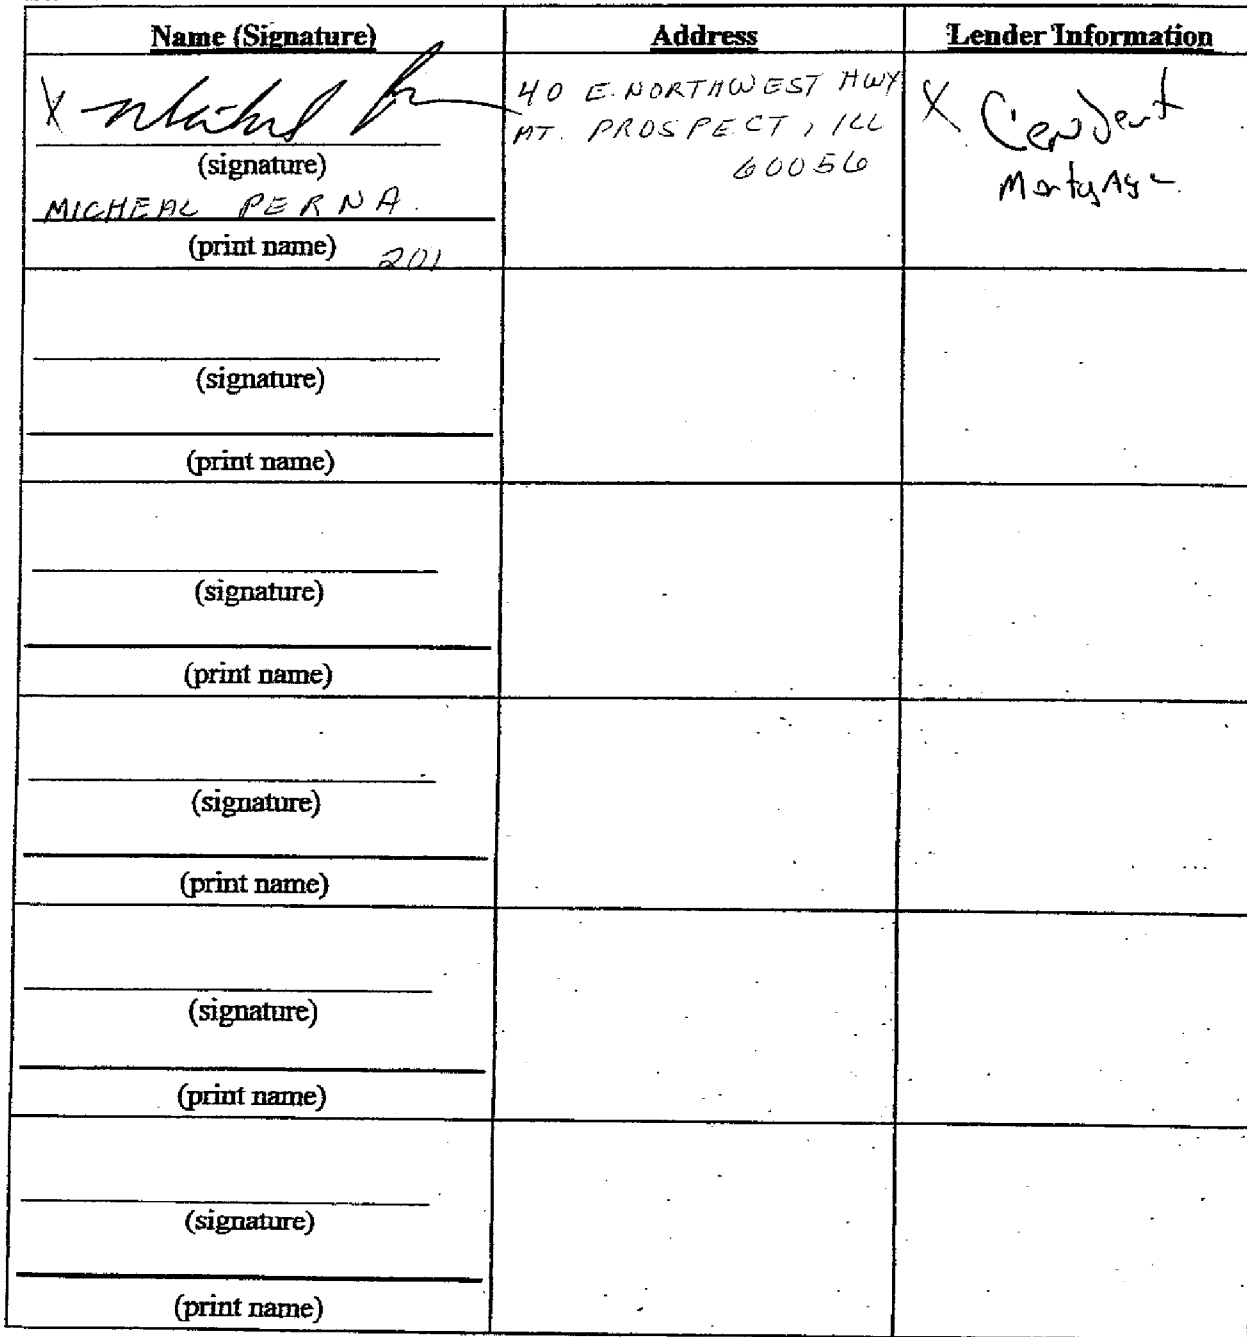 Name (Signature) Address Lender Information
X
(signature)
MICHEAL PERNA.
(print name) 201
40 E. NORTHWEST HWY
MT. PROSPECT, ILL
60056
X Cendent
Mortgage
(signature)
(print name)
(signature)
(print name)
(signature)
(print name)
(signature)
(print name)
(signature)
(print name)